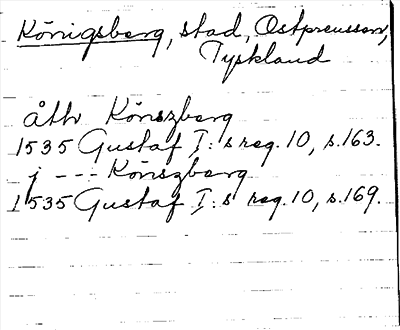 Königsberg, stad, Ostpreussen,
Tyskland
åthr Könszberg
1535 Gustaf I:s reg. 10, s.163.
j --- Könszberg
1535 Gustaf I:s reg. 10, s.169.